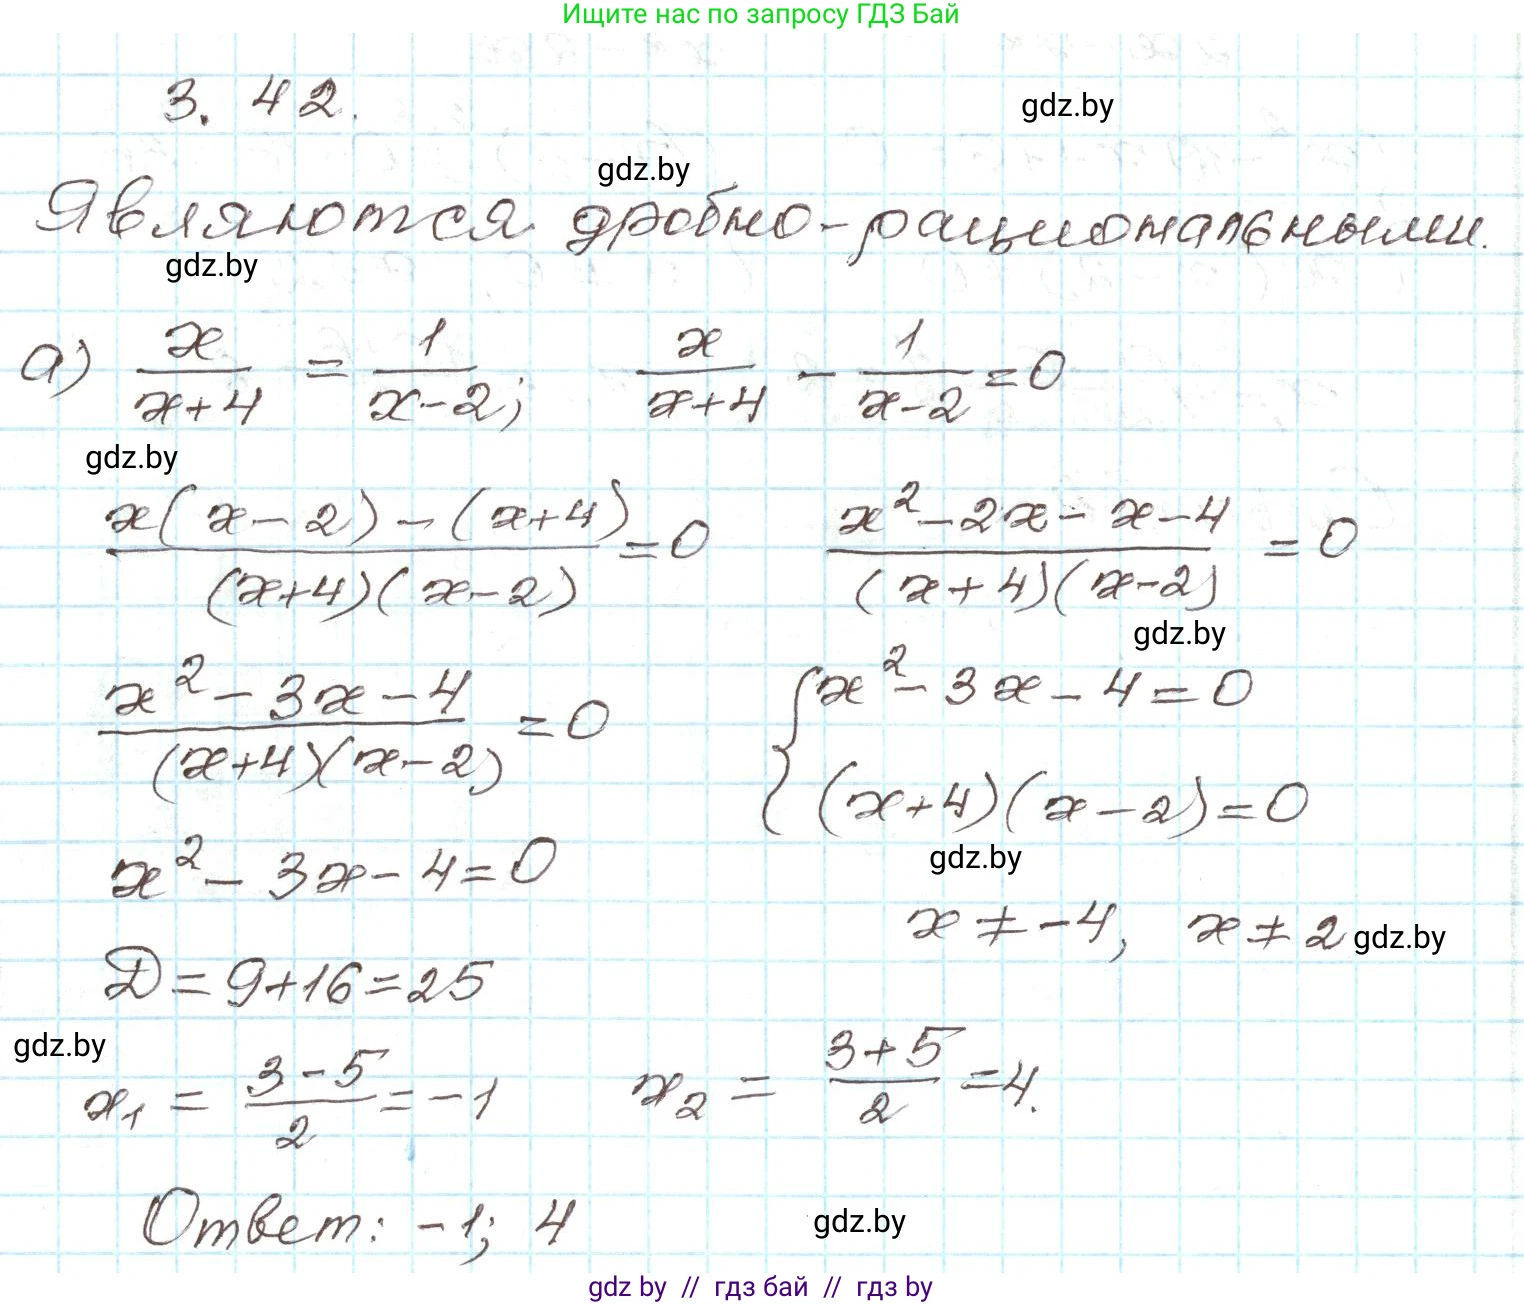 Ищите нас по запросу ГДЗ Бай
3. 42.
gdz.by
gdz.by
Являются дробно-рациональными.
gdz.by
а) x/(x+4) = 1/(x-2); x/(x+4) - 1/(x-2) = 0
gdz.by
(x(x-2)-(x+4))/((x+4)(x-2)) = 0 (x²-2x-x-4)/((x+4)(x-2)) = 0
gdz.by
(x²-3x-4)/((x+4)(x-2)) = 0 { x²-3x-4=0
(x+4)(x-2)=0
gdz.by
x²-3x-4=0
x ≠ -4, x ≠ 2 gdz.by
D=9+16=25
gdz.by
x₁ = (3-5)/2 = -1 x₂ = (3+5)/2 = 4.
Ответ: -1; 4
gdz.by
gdz by // гдз бай // гдз by